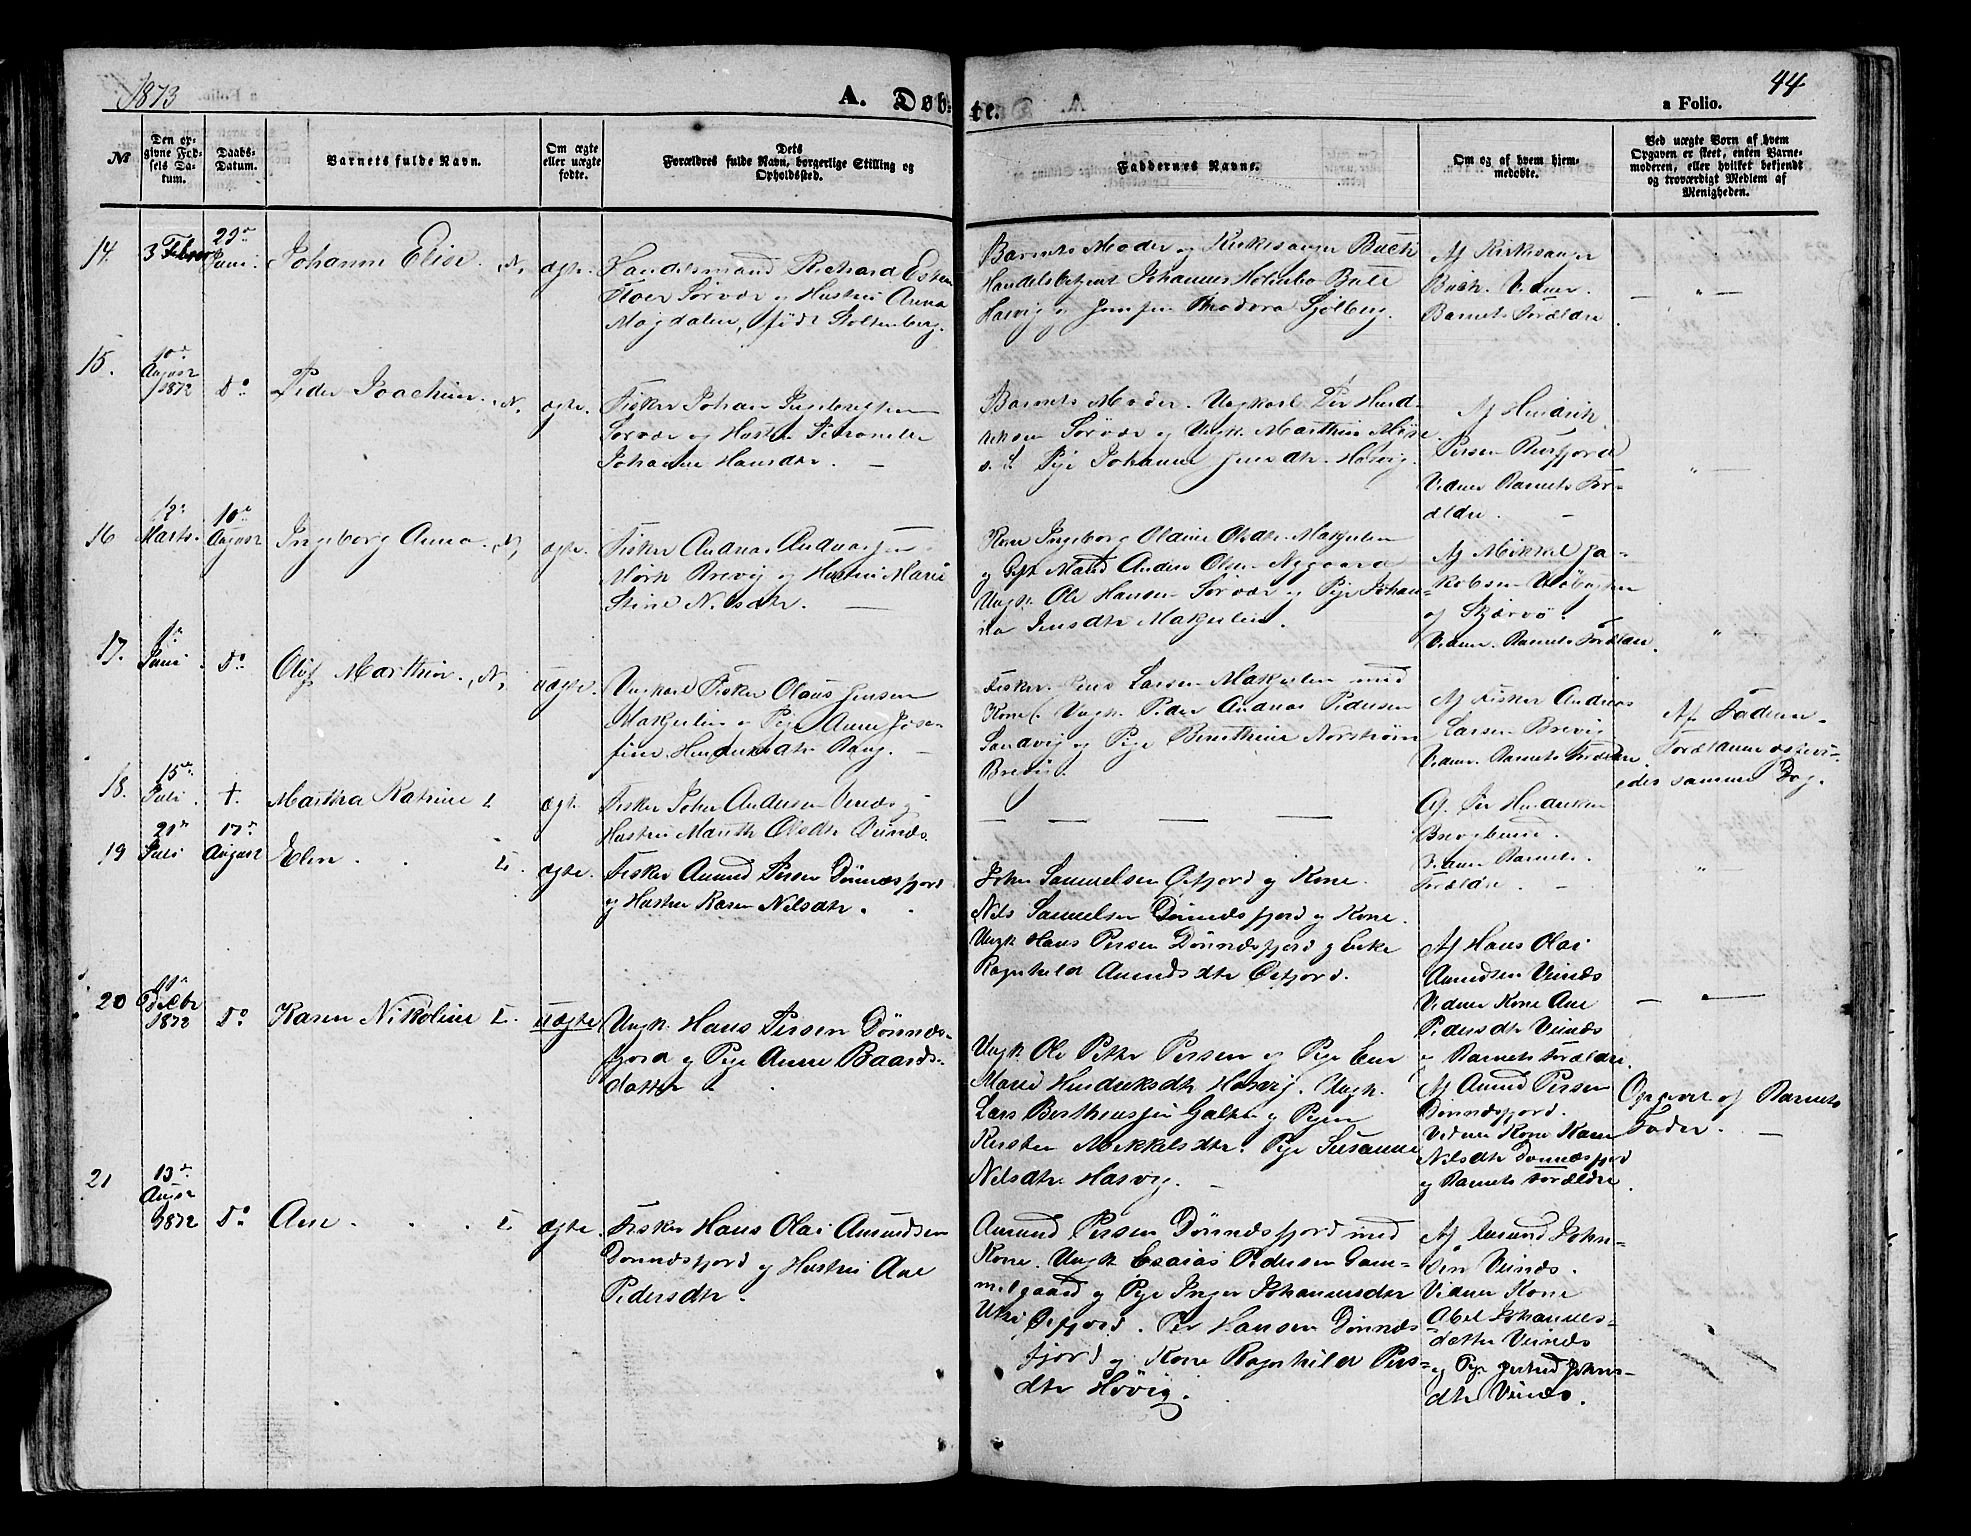 1873
A. Døb-
te.
44
a Folio.
№
Den op-
givne Fød-
sels Da-
tum.
Daabs-
Datum.
Barnets fulde Navn.
Om ægte
eller uægte
fødte.
Dets
Forældres fulde Navn, borgerlige Stilling og
Opholdssted.
Faddernes Navne.
Om og af hvem hjem-
medøbte.
Ved uægte Børn af hvem
Opgaven er skeet, enten Barne-
moderen, eller hvilket bekjendt
og troværdigt Medlem af
Menigheden.
14. 3 Februar 29de Juni. Johanne Elise. N, ægte.
Handelsmand Richard Esten
Floer Sørvær og Hustru Anna
Magdalena, født Stoltenberg.
Barnets Moder og Kirkesanger Bach
Handelsbetjent Johannes Holmbo Bull
Hasvig og Jomfru Theodora Sjølberg.
Af Kirkesanger
Bach. Vidner
Barnets Forældre
15. 10de August 1872 Do Peder Joachim. N, ægte.
Fisker Johan Ingebrigtsen
Sørvær og Hustru Petronelle
Johanne Hansdtr.
Barnets Moder. Ungkarl Per Hend-
riksen Sørvær og Ungk. Marthin
Pige Johanne Jensdtr Hasvig.
Af Hendrik
Persen
Vidner Barnets For-
ældre.
16 12 Marts. 10de August Ingeborg Anna. N, ægte.
Fisker Andreas Andreassen
Mørk Brevig og Hustru Marie
Stine Nilsdtr.
Kone Ingeborg Oldine Olsdtr
og Gift Mand Anders Olsen Nygaard
Ungk. Ole Hansen Sørvær og Pige Johan-
na Jensdtr
Af Mikkel Ja-
kobsen
af Skjærvø.
Vidner Barnets Forældre.
17. 1de Juni. Do Oluf Marthin. N, uægte.
Ungkarl Fisker Olaus Jensen
og Pige Anne Jose-
fine Hendriksdtr
Fisker Jens Larsen med
Kone. Ungk. Peder Andreas Pedersen
Sandvig og Pige Benthine Norstrøm
Brevig.
Af Fisker Andreas
Larsen Brevig
Vidner Barnets Forældre
Af Faderen.
Forældrene
samme Dag.
18. 15de Juli. †. Martha Katrine L ægt.
Fisker John Andersen Veinæs og
Hustru Mareth Olsdtr Veinæs.
Af Per Hendriksen
Vidner Barnets
Forældre.
19 21de Juli 17de August Elen. L. ægte.
Fisker Amund Persen Dønnæsfjord
og Hustru Karen Nilsdtr.
John Samuelsen Øxfjord og Kone.
Nils Samuelsen Dønnæsfjord og Kone.
Ungk Hans Persen Dønnæsfjord og Enke
Ragnhild Amundsdtr Øxfjord.
Af Hans Olai
Amundsen Veinæs
Vidner Kone Ane
Pedersdtr Veinæs
og Barnets Forældre.
20 11de Decbr 1872 Do Karen Nikoline L. uægte
Ungk. Hans Persen Dønnæs-
fjord og Pige Anne Baards-
datter.
Ungk Ole Petter Persen og Pige Ane
Marie Hendriksdtr Hasvig. Ungk.
Lars Berthensen Galten og Pigen
Kirsten Mikkelsdtr. Pige Susanne
Nilsdtr Hasvig.
Af Amund Persen
Dønnæsfjord.
Vidner Kone Karen
Nilsdtr Dønnæsfjord
og Barnets Forældre.
Opgivet af Barnets
Fader.
21 13de August 1872 Do Ane. L. ægte.
Fisker Hans Olai Amundsen
Dønnæsfjord og Hustru Ane
Pedersdtr.
Amund Persen Dønnæsfjord med
Kone. Ungk Esaias Pedersen Gam-
melgaard og Pige Inger Johannesdtr
Øxfjord. Per Hansen Dønnæs-
fjord og Kone Ragnhild Pers-
dtr Hasvig.
Af Amund John-
sen Veinæs.
Vidner Kone
Abel Johannes-
datter Veinæs
og Pige Gjertrud Johns-
dtr Veinæs.